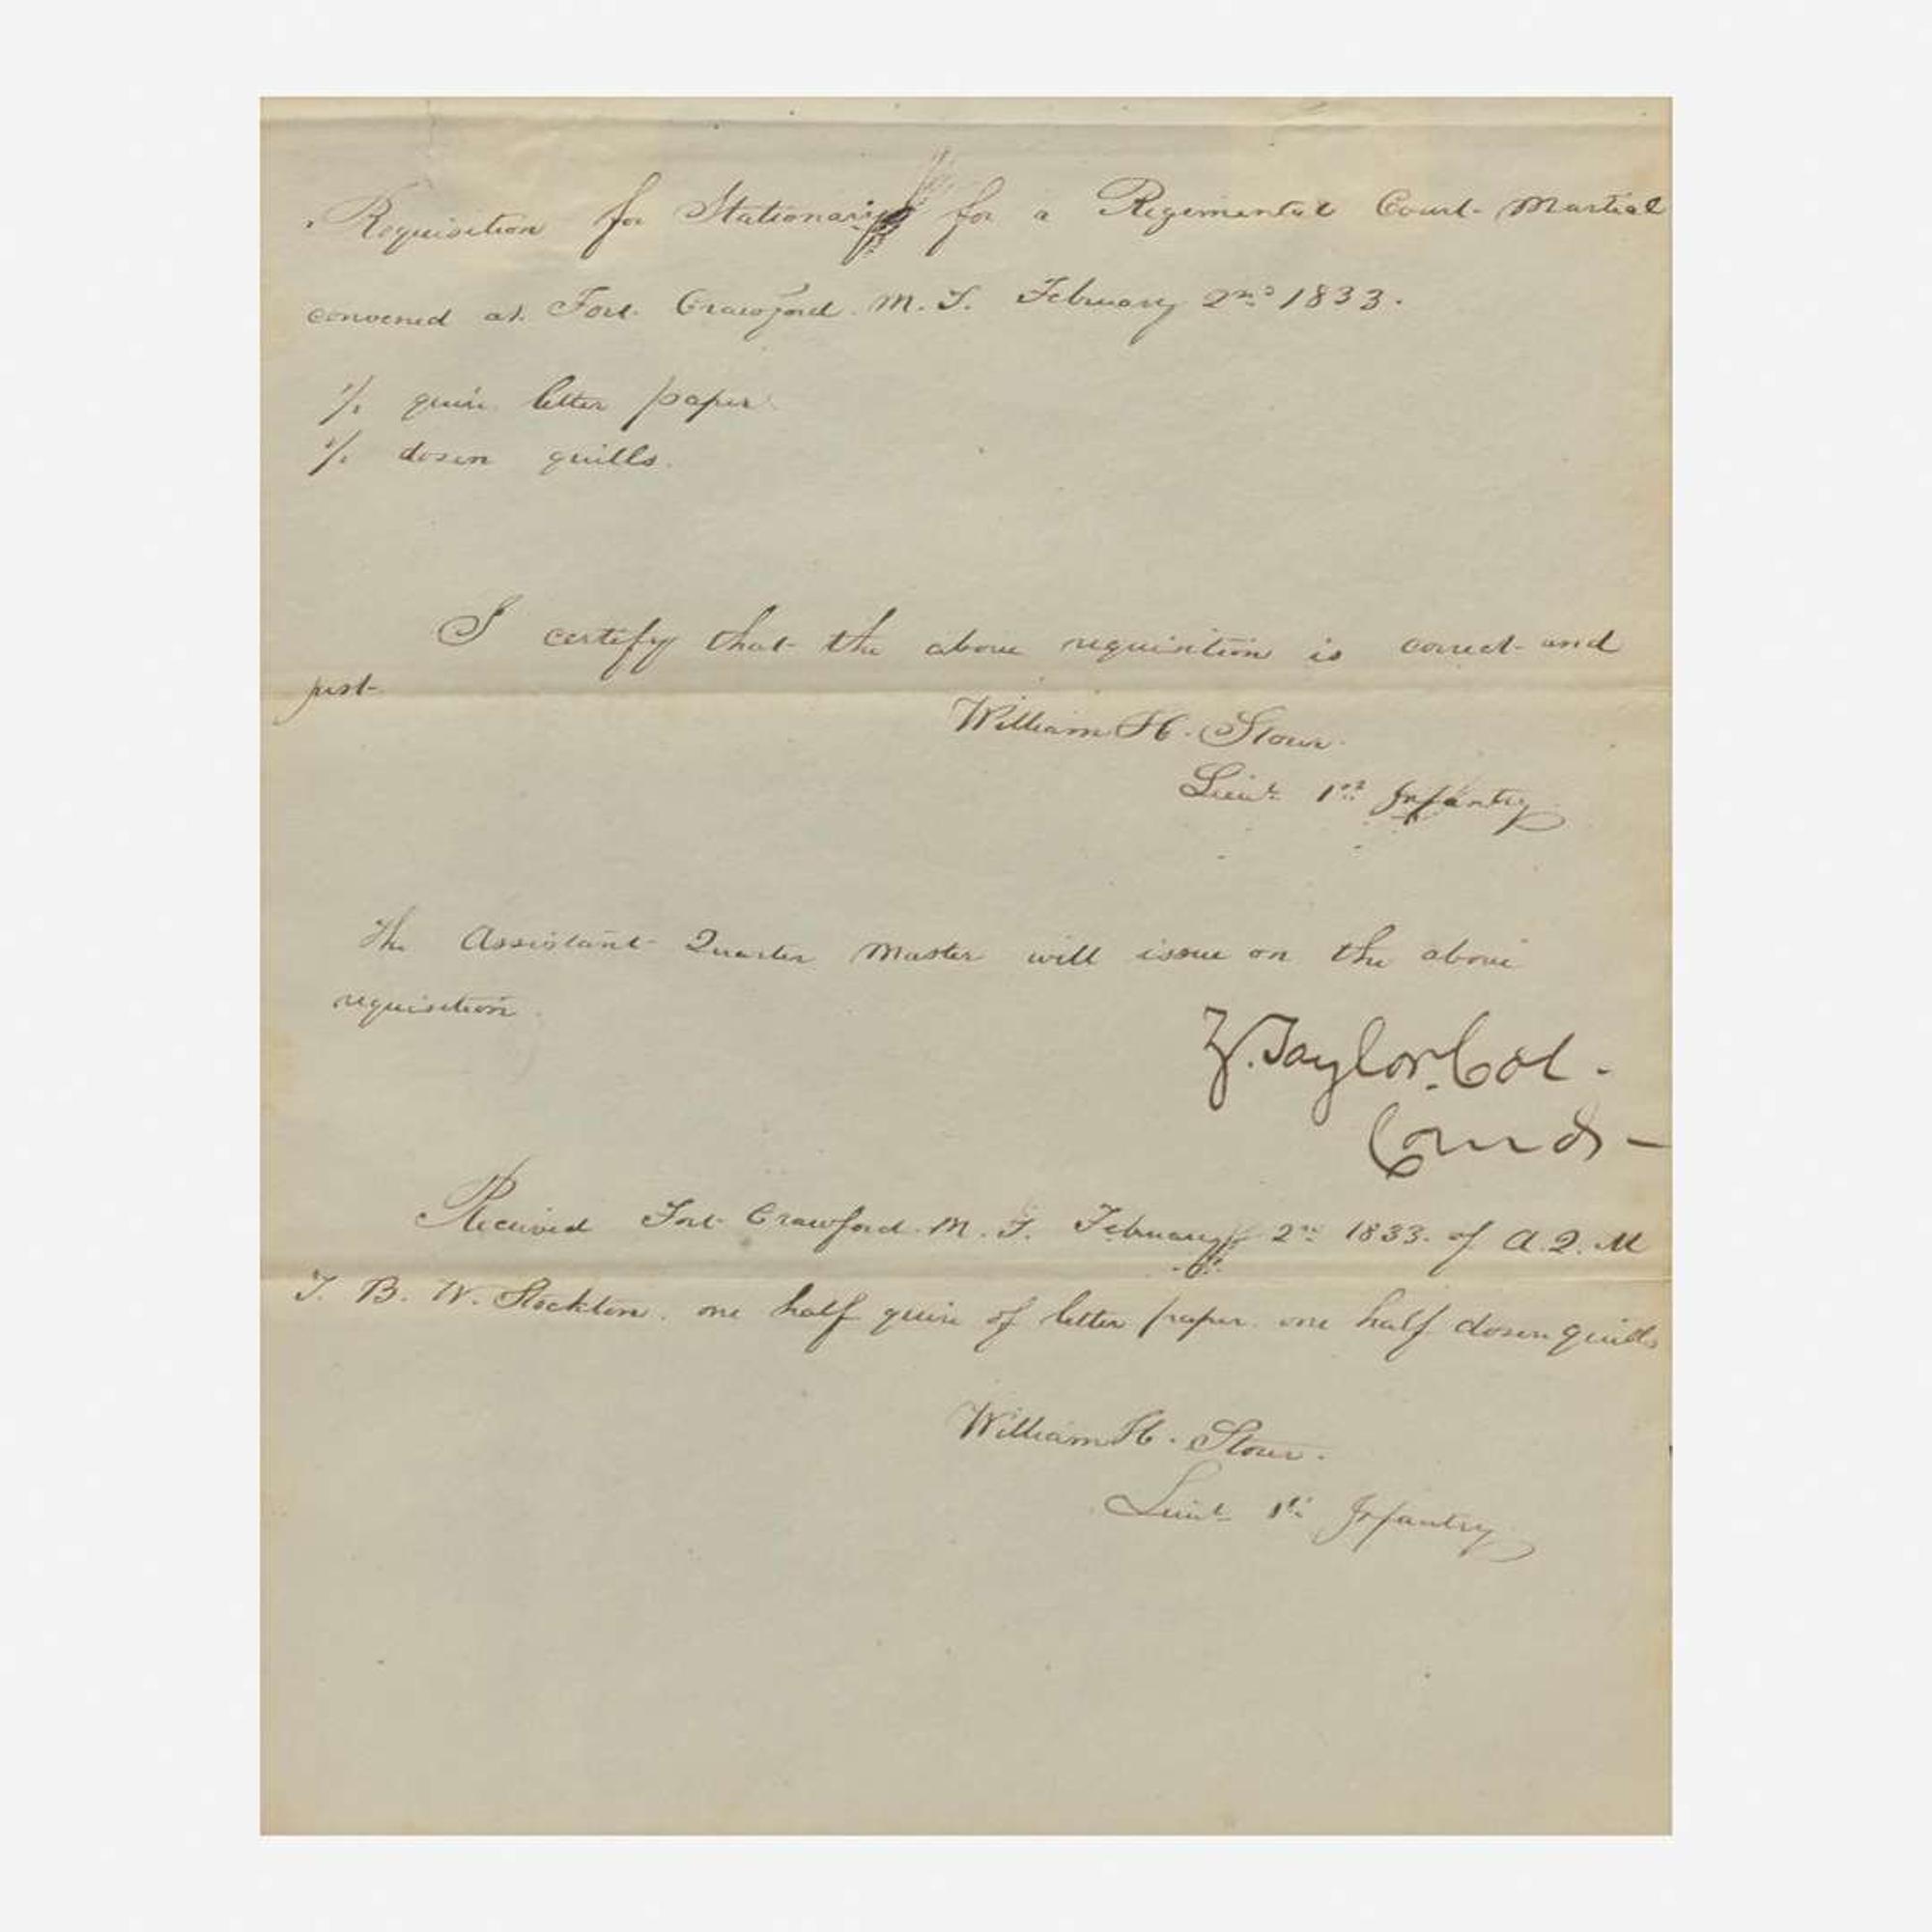 Requisition for Stationary for a Regimental Court-Martial
convened at Fort Crawford M. T. February 2nd 1833.
1/2 quire letter paper
1/2 dosen quills.
I certify that the above requisition is correct and
just
William H. Storer
Lieut 1st Infantry
The Assistant Quarter Master will issue on the above
requisition.
Z. Taylor. Col.
Comdr
Received Fort Crawford M. T. February 2nd 1833. of A. Q. M
T. B. W. Stockton. one half quire of letter paper one half dosen quills
William H. Storer.
Lieut 1st Infantry